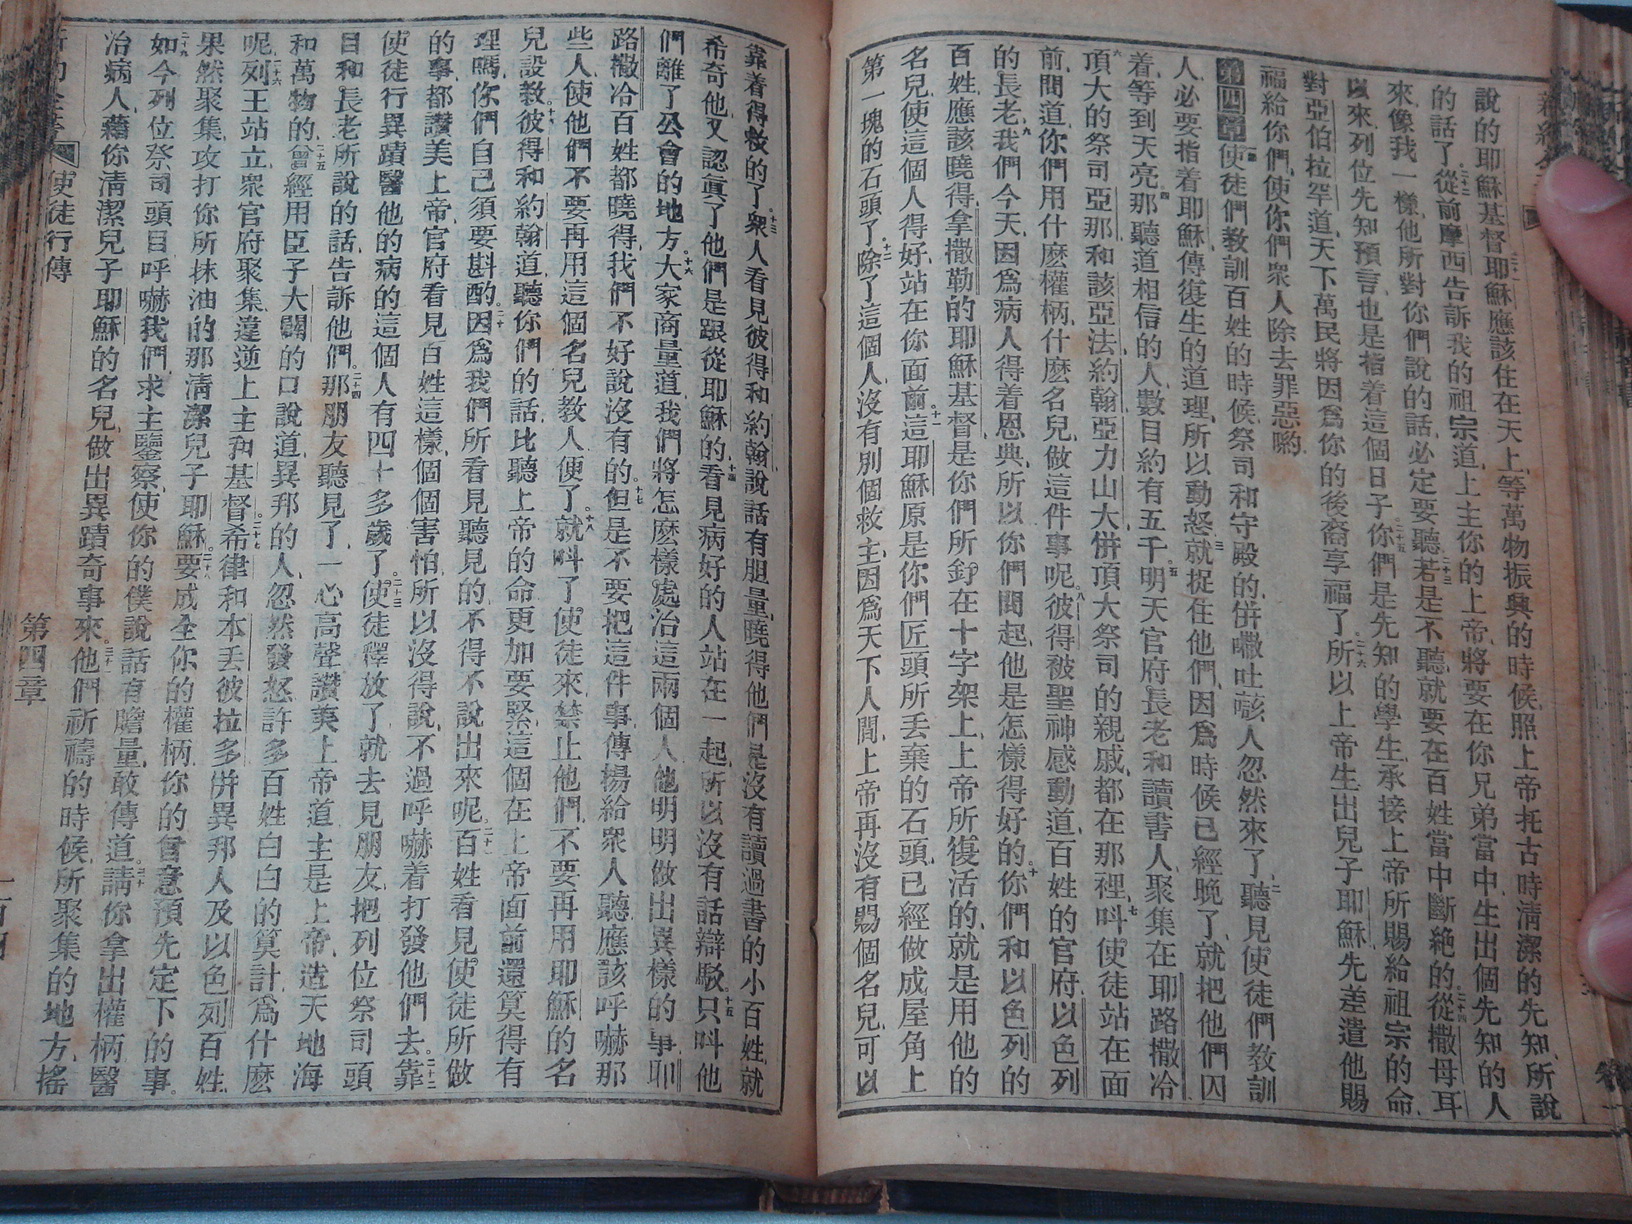 說的耶穌基督耶穌應該住在天上等萬物振興的時候照上帝托古時清潔的先知所說
的話了從前摩西告訴我的祖宗道上主你的上帝將要在你兄弟當中生出個先知的人
來像我一樣他所對你們說的話必定要聽若是不聽就要在百姓當中斷絕的從撒母耳
以來列位先知預言也是指着這個日子你們是先知的學生承接上帝所賜給祖宗的命
對亞伯拉罕道天下萬民將因爲你的後裔享福了所以上帝生出兒子耶穌先差遣他賜
福給你們使你們衆人除去罪惡喲
第四章使徒們教訓百姓的時候祭司和守殿的併㘔吐㗡人忽然來了聽見使徒們教訓
人必要指着耶穌傳復生的道理所以動怒就捉住他們因爲時候已經晚了就把他們囚
着等到天亮那聽道相信的人數目約有五千明天官府長老和讀書人聚集在耶路撒冷
頂大的祭司亞那和該亞法約翰亞力山大併頂大祭司的親戚都在那裡呌使徒站在面
前問道你們用什麽權柄什麽名兒做這件事呢彼得被聖神感動道百姓的官府以色列
的長老我們今天因爲病人得着恩典所以你們問起他是怎樣得好的你們和以色列的
百姓應該曉得拿撒勒的耶穌基督是你們所釘在十字架上上帝所復活的就是用他的
名兒使這個人得好站在你面前這耶穌原是你們匠頭所丟棄的石頭已經做成屋角上
第一塊的石頭了除了這個人沒有別個救主因爲天下人間上帝再沒有賜個名兒可以
靠着得救的了衆人看見彼得和約翰說話有胆量曉得他們是沒有讀過書的小百姓就
希奇他又認眞了他們是跟從耶穌的看見病好的人站在一起所以沒有話辯駁只呌他
們離了公會的地方大家商量道我們將怎麽樣處治這兩個人他明明做出異樣的事耶
路撒冷百姓都曉得我們不好說沒有的但是不要把這件事傳揚給衆人聽應該呼嚇那
些人使他們不要再用這個名兒教人便了就呌了使徒來禁止他們不要再用耶穌的名
兒設教彼得和約翰道聽你們的話比聽上帝的命更加要緊這個在上帝面前還算得有
理嗎你們自己須要斟酌因爲我們所看見聽見的不得不說出來呢百姓看見使徒所做
的事都讚美上帝官府看見百姓這樣個個害怕所以沒得說不過呼嚇着打發他們去靠
使徒行異蹟醫他的病的這個人有四十多歲了使徒釋放了就去見朋友把列位祭司頭
目和長老所說的話告訴他們那朋友聽見了一心高聲讚美上帝道主是上帝造天地海
和萬物的曾經用臣子大闢的口說道異邦的人忽然發怒許多百姓白白的算計爲什麽
呢列王站立衆官府聚集違逆上主和基督希律和本丟彼拉多併異邦人及以色列百姓
果然聚集攻打你所抹油的那清潔兒子耶穌要成全你的權柄你的旨意預先定下的事
如今列位祭司頭目呼嚇我們求主鑒察使你的僕說話有膽量敢傳道請你拿出權柄醫
治病人藉你清潔兒子耶穌的名兒做出異蹟奇事來他們祈禱的時候所聚集的地方搖
使徒行傳
第四章